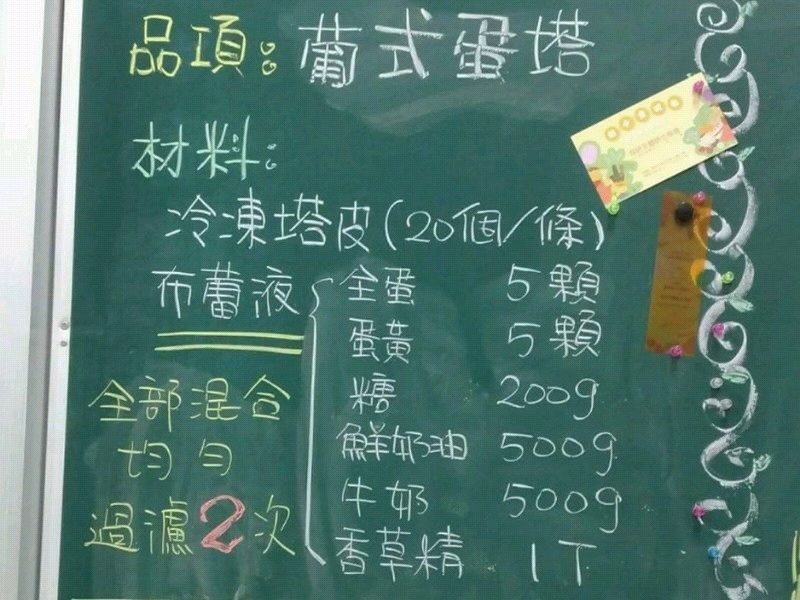 品項:葡式蛋塔
材料:
冷凍塔皮(20個/條)
布蕾液
全蛋 5顆
蛋黃 5顆
糖 200g
鮮奶油 500g
牛奶 500g
香草精 1T
全部混合
均勻
過濾2次